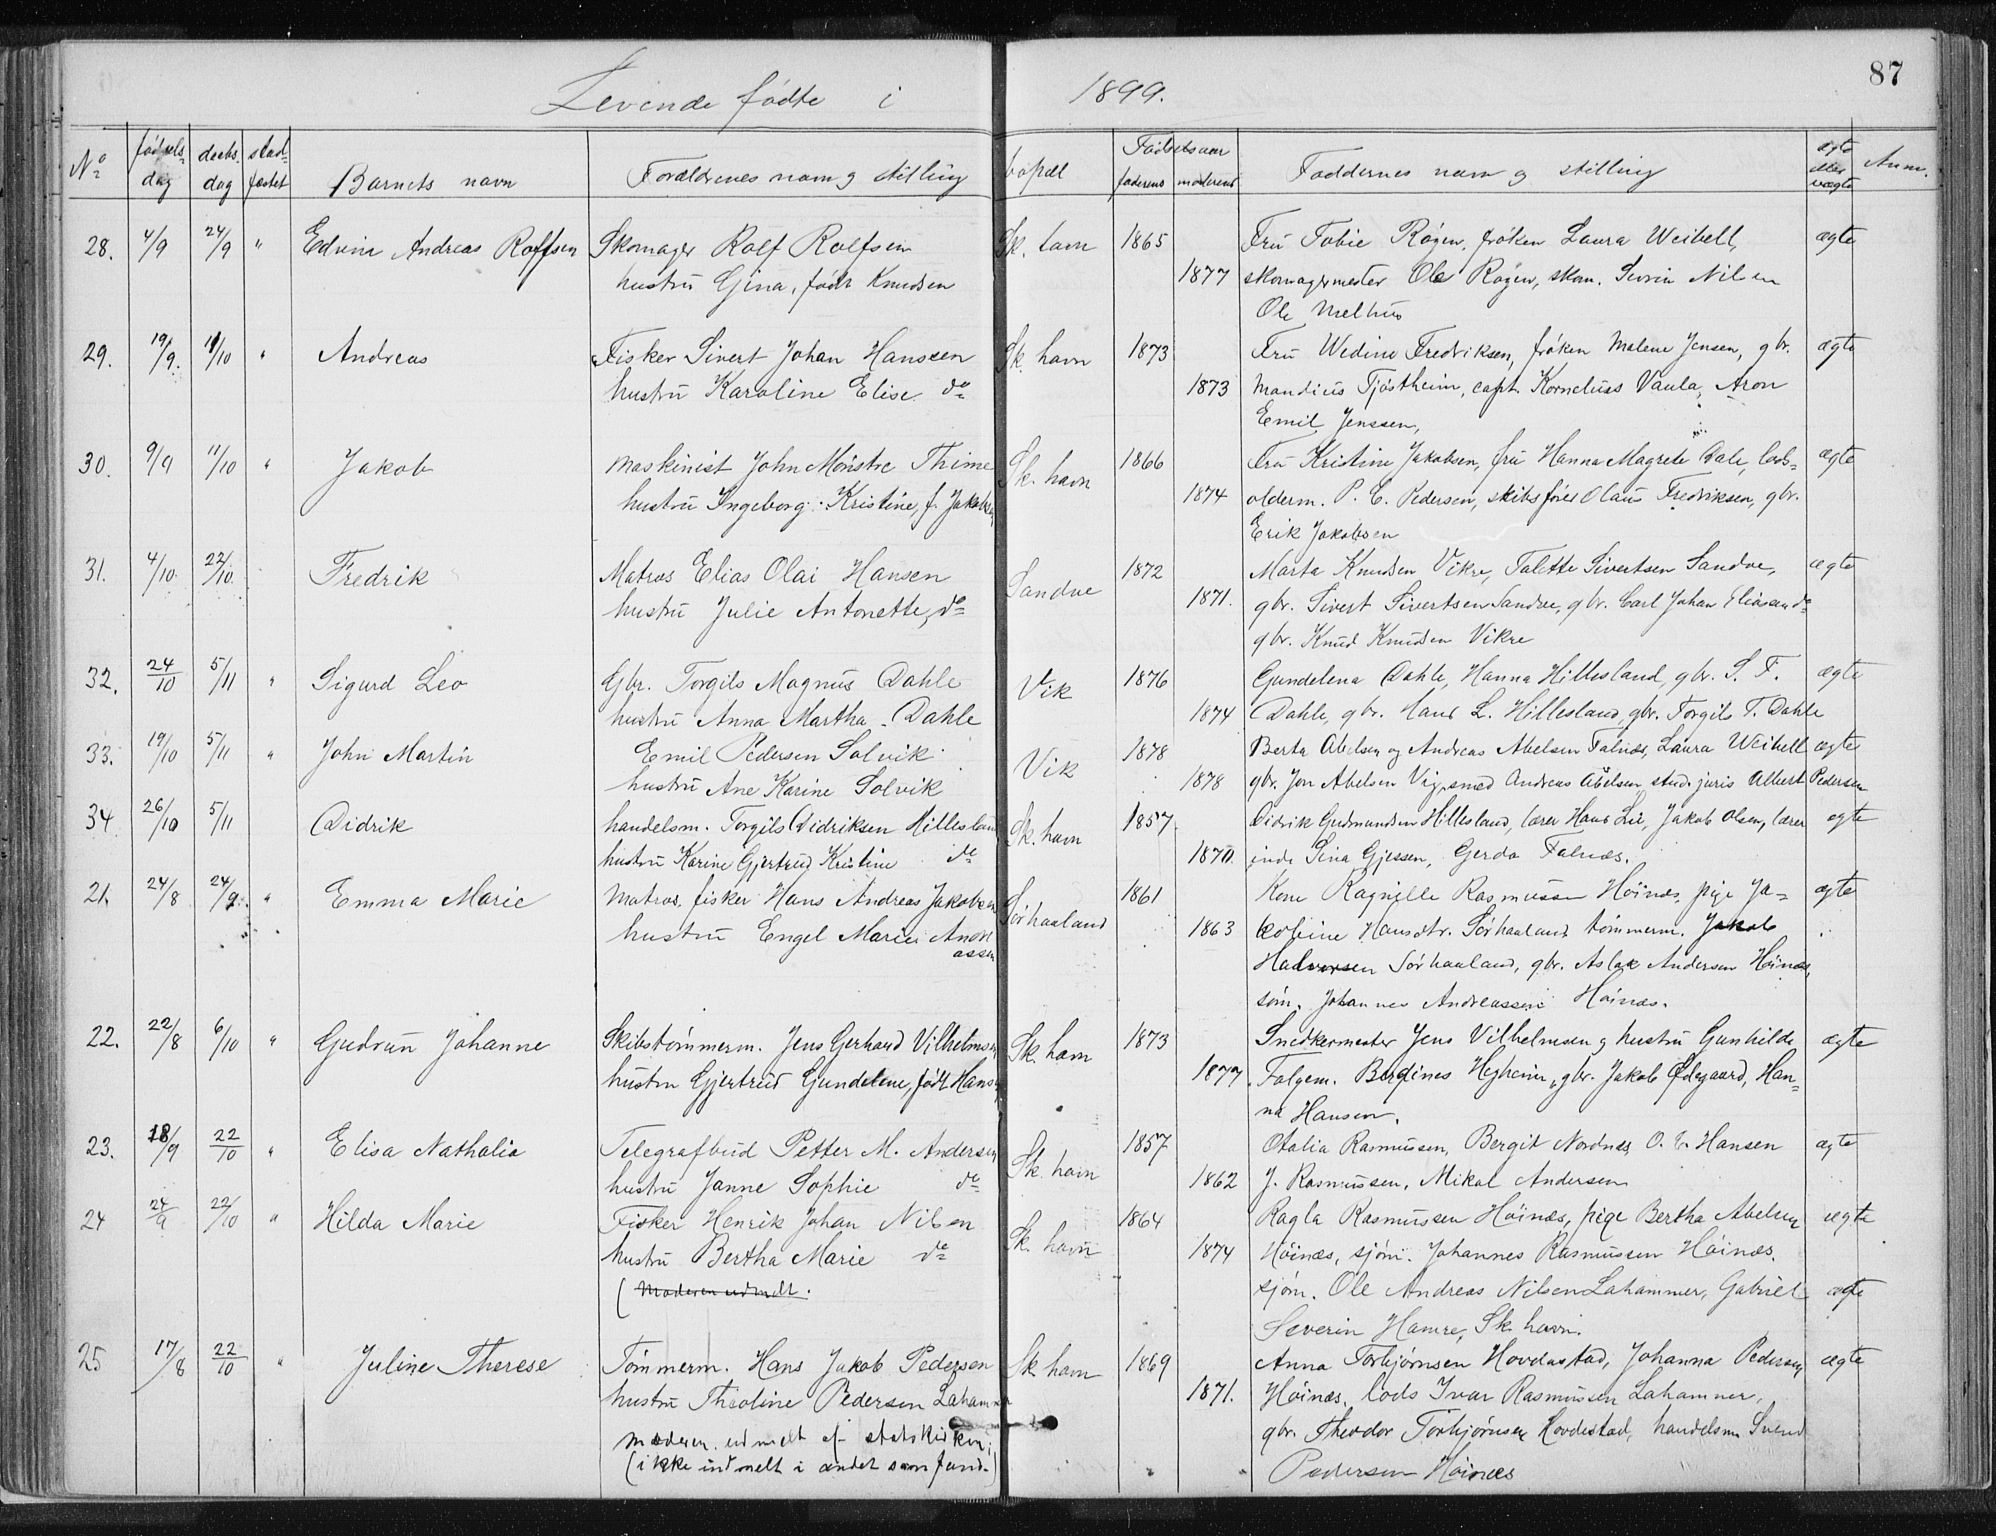 87
Levende fødte i 1899.
No fødsels dag daabs dag stad fæstet Barnets navn Forældrenes navn og stilling bopæl Fødselsaar faderens moderens Faddernes navn og stilling ægte eller uægte Anm.
28. 4/9 24/9 " Edvin Andreas Rolfsen Skomager Rolf Rolfsen Sk. havn 1865 Fru Tobie Røgen, frøken Laura Weibell, ægte
hustru Gina, født Knudsen 1877 skomagermester Ole Røgen, skom. Sivrin Nilsen
Ole Melhus
29. 19/9. 11/10 " Andreas Fisker Sivert Johan Hanssen Sk. havn 1873 Fru Wedine Fredriksen, frøken Malene Jensen, gbr. ægte
hustru Karoline Elise do 1873 Mandius Tjøstheim, capt. Kornelius Vaula, Aron
Emil Jenssen,
30. 9/9 11/10 " Jakob Maskinist John Mønstre Thime Sk. havn 1866 Fru Kristine Jakobsen, fru Hanna Magrete Dale, lods= ægte
hustru Ingeborg Kristine, f. Jakobsen 1874 olderm. P. C. Pedersen, skibsfører Olaus Fredriksen, gbr.
Erik Jakobsen
31. 4/10. 22/10. Fredrik Matros Elias Olai Hansen Sandve 1872 Marta Knudsen Vikre, Talette Sivertsen Sandve, ægte
hustru Julie Antonette, do 1871. gbr. Sivert Sivertsen Sandve, gbr. Carl Johan Eliassen do
gbr. Knud Knudsen Vikre
32. 24/10 5/11 " Sigurd Leo Gbr. Torgils Magnus Dahle Vik 1876 Gundelena Dahle, Hanna Hillesland, gbr. S. T. ægte
hustru Anna Martha Dahle 1874 Dahle, gbr. Hans L. Hillesland, gbr. Torgils T. Dahle
33. 19/10 5/11 " John Martin Emil Pedersen Solvik Vik 1878 Berta Abelsen og Andreas Abelsen Falnæs, Laura Weibell ægte
hustru Ane Karine Solvik 1878 gbr. Jon Abelsen Vig, smed Andreas Abelsen, stud. juris Albert Pedersen
34 26/10 5/11 Didrik handelsm. Torgils Didriksen Hillesland Sk. havn 1857 Didrik Gudmundsen Hillesland, lærer Hans Lie, Jakob Olsen, lærer ægte
hustru Karine Gjertrud Kristine do 1870. inde Sina Gjessen, Gerda Falnæs.
21. 24/8 24/9. " Emma Marie Matros, fisker Hans Andreas Jakobsen Sørhaaland 1861 Kone Ragnille Rasmussen Høinæs, pige Ja= ægte
hustru Engel Marie Andreassen 1863 kobine Hansdtr. Sørhaaland, tømmerm. Jakob
Halvorsen Sørhaaland, gbr. Aslak Andersen Høinæs,
søm. Johannes Andreassen Høinæs.
22. 22/8 6/10 " Gudrun Johanne Skibstømmerm. Jens Gerhard Vilhelmsen Sk. havn 1873 Snedkermester Jens Vilhelmsen og hustru Gunhilde ægte
hustru Gjertrud Gundelene, født Hansen 1877. Folgem. Berdines Hejheim, gbr. Jakob Ødegaard, Han=
na Hansen.
23. 18/9 22/10 " Elisa Nathalia Telegrafbud Petter M. Andersen Sk. havn 1857 Otalia Rasmussen, Bergit Nordnes, O. C. Hansen ægte
hustru Janne Sophie do 1862 J. Rasmussen, Mikal Andersen
24 24/9 22/10 " Hilda Marie Fisker Henrik Johan Nilsen Sk. havn 1864 Ragla Rasmussen Høinæs, pige Bertha Abelsen ægte
hustru Bertha Marie do 1874 Høinæs, sjøm. Johannes Rasmussen Høinæs.
( Moderen udmdt. sjøm. Ole Andreas Nilsen Lahammer, Gabriel ægte
Severin Hamre, Sk. havn.
25 17/8 22/10 " Juline Therese Tømmerm. Hans Jakob Pedersen Sk. havn 1869 Anna Torbjørnsen Hovdastad, Johanna Pedersen ægte
hustru Theoline Pedersen Lahammer 1871. Høinæs, lods Ivar Rasmussen Lahammer,
Moderen udmeldt af statskirken; gbr. Theodor Torbjørnsen Hovdestad, handelsm Svend
(ikke indmelt i andet samfund.) Pedersen Høinæs